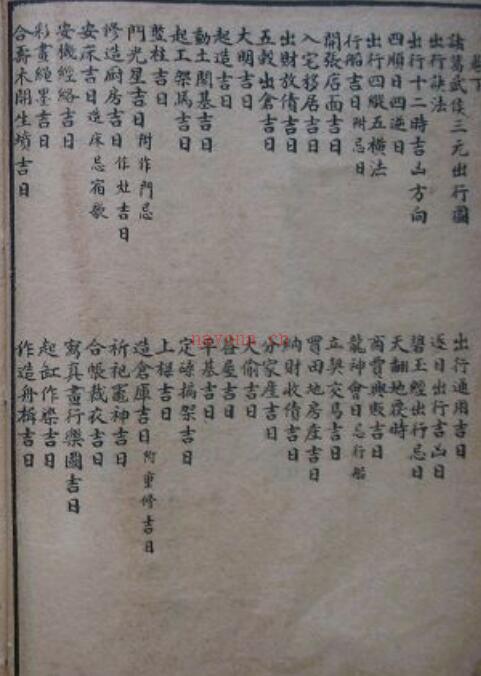 卷下
諸葛武侯三元出行圖
出行訣法
出行十二時吉凶方向
四順日四逆日
出行四縱五橫法
行船吉日附忌日
開張店面吉日
入宅移居吉日
出財放債吉日
五穀出倉吉日
大明吉日
起造吉日
動土開基吉日
起工架馬吉日
豎柱吉日
門光星吉日附作門忌
修造廚房吉日作灶吉日
安床吉日造床忌宿歌
安機經絡吉日
彩畫繩墨吉日
合壽木開生墳吉日
出行通用吉日
逐日出行吉凶日
碧玉經出行忌日
天翻地覆時
商賈興販吉日
龍神會日忌行船
立契交易吉日
買田地房產吉日
納財收債吉日
分家產吉日
天偷吉日
蓋屋吉日
平基吉日
定磉搧架吉日
上樑吉日
造倉庫吉日附重修吉日
祈祀竈神吉日
合帳裁衣吉日
寫真畫行樂圖吉日
起缸作染吉日
作造舟楫吉日
nayona.cn